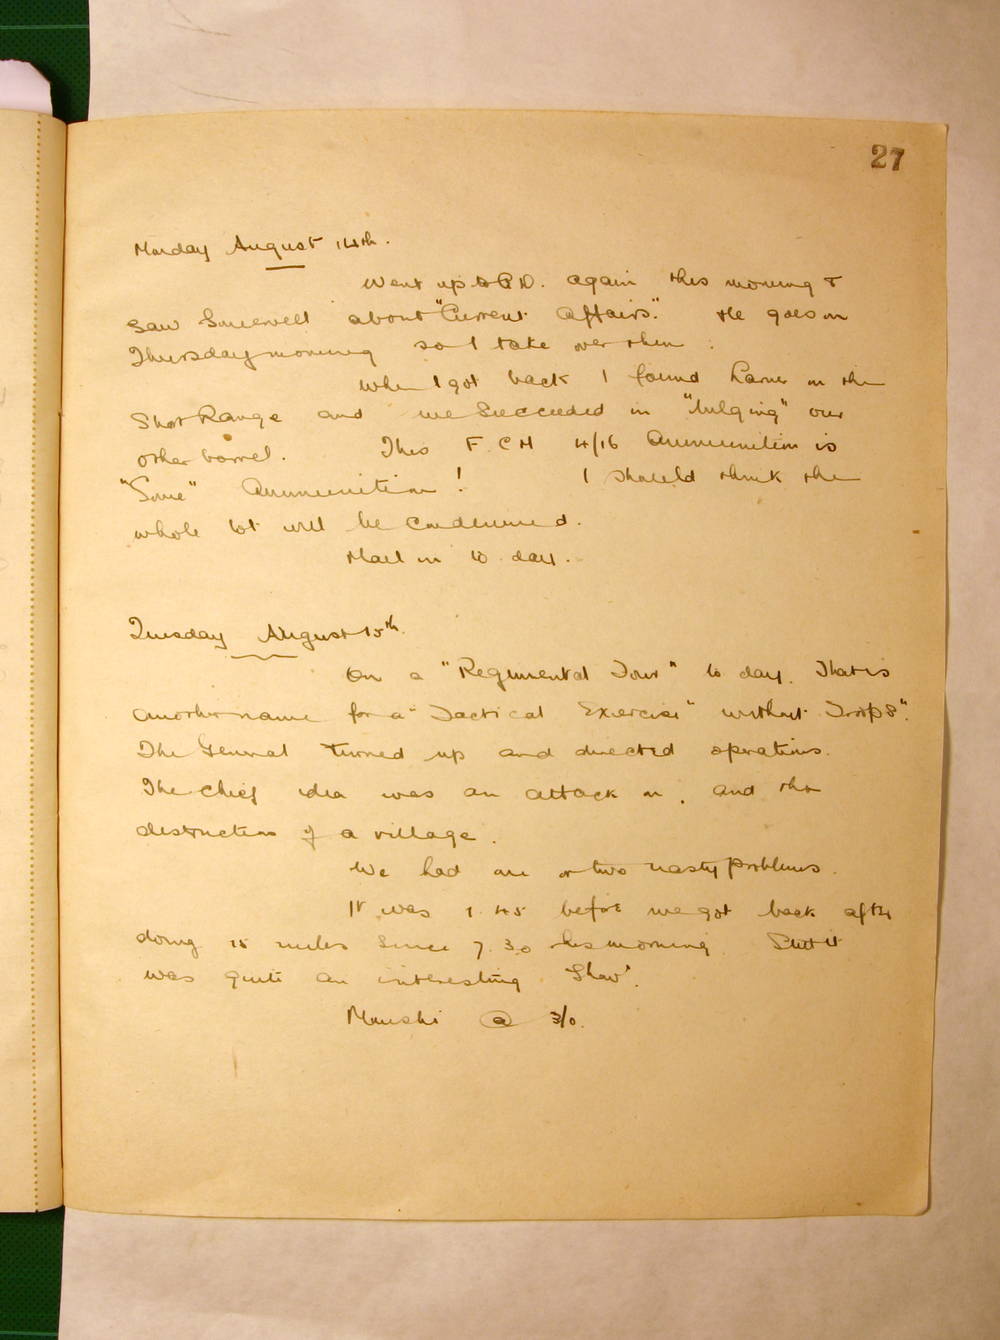 27
Monday August 14th.
Went up to C.D. again this morning &
saw about "Current Affairs." He goes on
Thursday morning so I take over then.
When I got back I found Larner on the
Short Range and we succeeded in "bulging" our
other barrel. This F.C.H 4/16 Ammunition is
"Some" Ammunition! I should think the
whole lot will be condemned.
Mail in to day.
Tuesday August 15th.
On a "Regimental Tour" to day. That is
another name for a "Tactical Exercise" without Troops".
The General turned up and directed operations.
The chief idea was an attack on, and the
destruction of a village.
We had one or two nasty problems.
It was 1.45 before we got back after
doing 15 miles since 7.30 this morning. But it
was quite an interesting 'Show'.
Munshi @ 3/0.